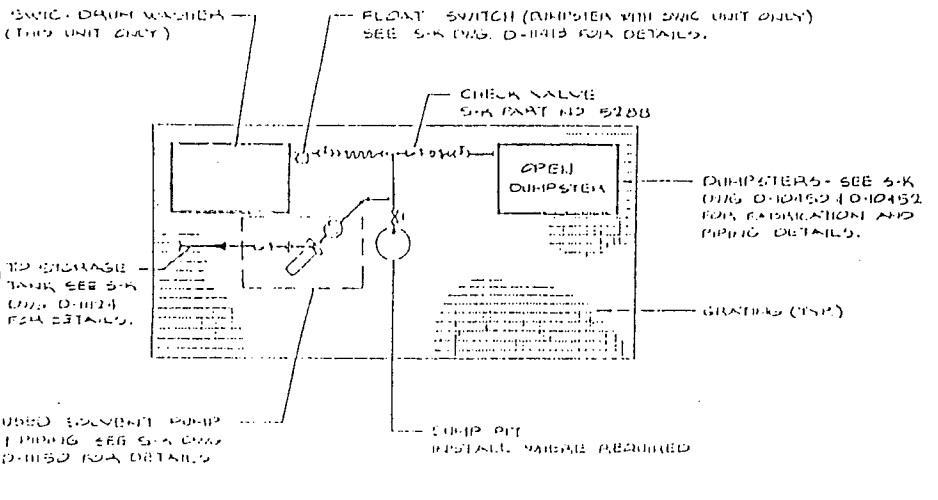 SWIC - DRUM WASHER
(THIS UNIT ONLY)
FLOAT SWITCH (DUMPSTER WITH SWIC UNIT ONLY)
SEE S-K DWG. D-11413 FOR DETAILS.
CHECK VALVE
S-K PART NO 5288
OPEN
DUMPSTER
DUMPSTERS - SEE S-K
DWG D-10452
FOR FABRICATION AND
PIPING DETAILS.
TO STORAGE
TANK SEE S-K
DWG D-11124
FOR DETAILS.
GRATING (TYP.)
USED SOLVENT PUMP
& PIPING SEE S-K DWG
D-11152 FOR DETAILS
SUMP PIT
INSTALL WHERE REQUIRED